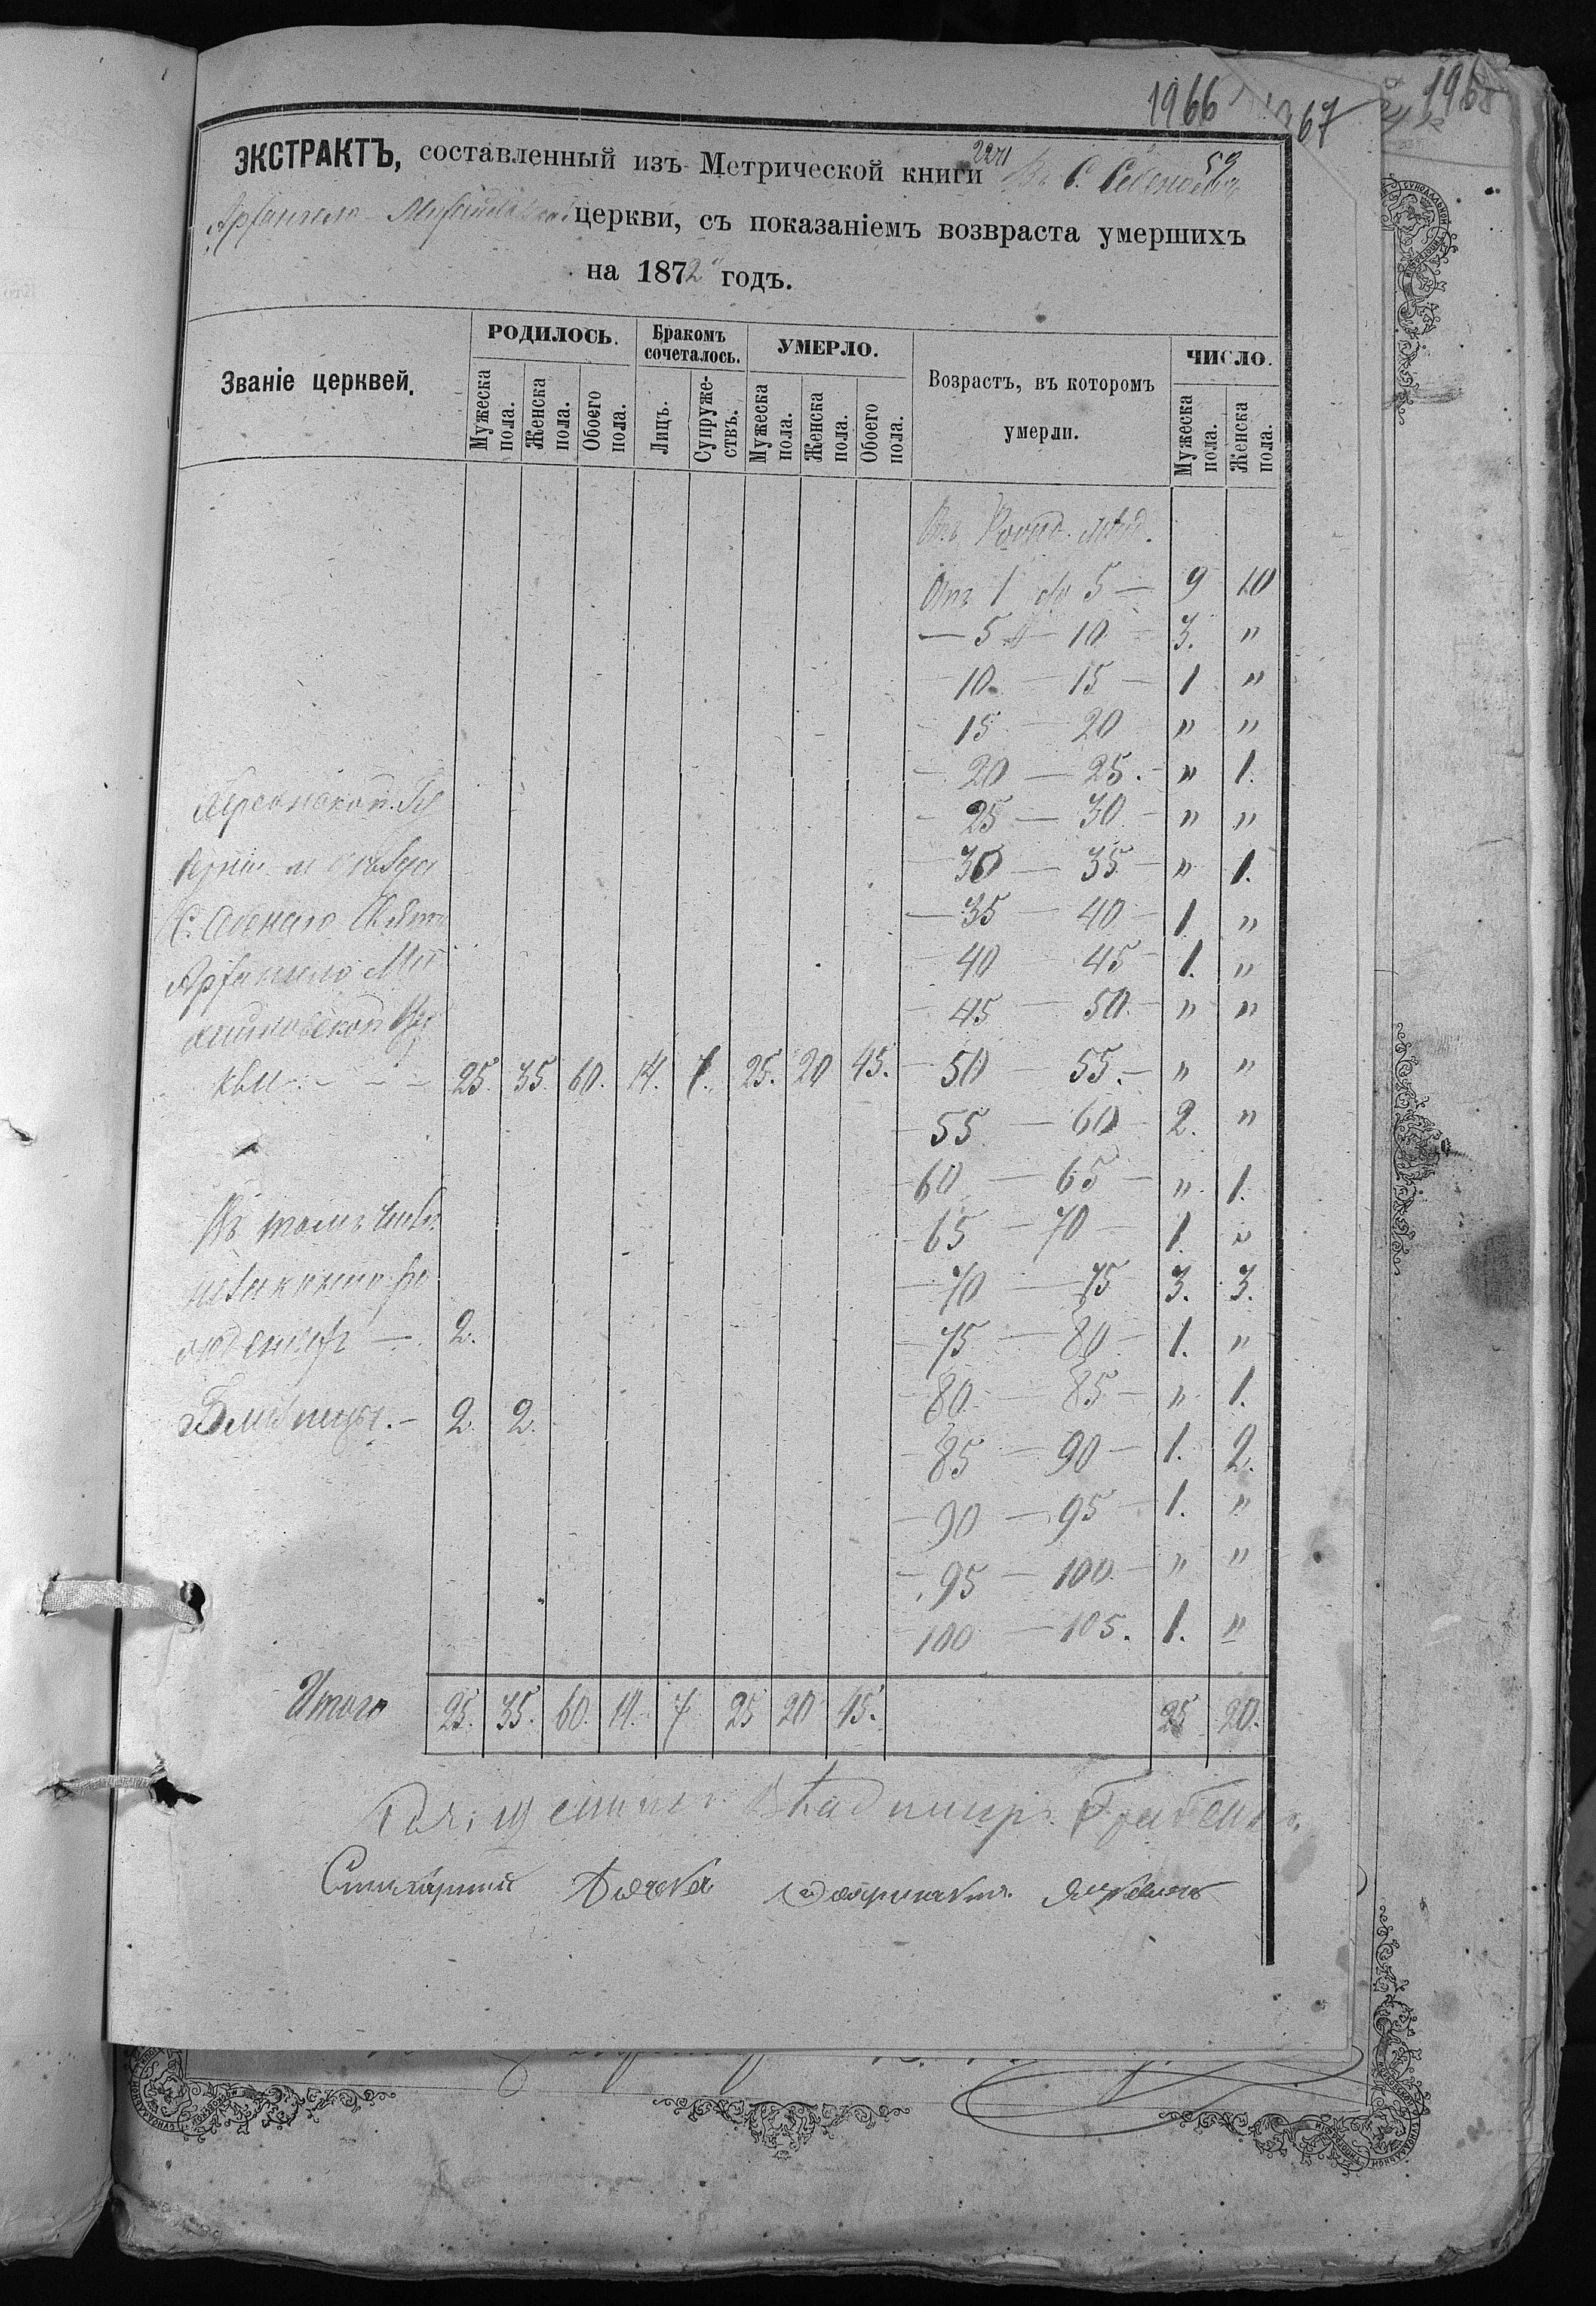 1966
67
1968
ЭКСТРАКТЪ, составленный изъ Метрической книги С.
Архангело-Михайловской церкви, съ показаніемъ возвраста умершихъ
на 1872 годъ.
Званіе церквей.
РОДИЛОСЬ.
Бракомъ сочеталось.
УМЕРЛО.
Возрастъ, въ которомъ умерли.
ЧИСЛО.
Мужеска пола.
Женска пола.
Обоего пола.
Лицъ.
Супружествъ.
Мужеска пола.
Женска пола.
Обоего пола.
Мужеска пола.
Женска пола.
Отъ 1 до 5 — 9 10
— 5 — 10 — 3. "
10 — 15 — 1 "
15 — 20 " "
— 20 — 25. — " 1.
Херсонской Гу
25 — 30 — " "
30 — 35 — " 1.
— 35 — 40 — 1 "
Архангело Ми
40 — 45 — 1. "
45 — 50 — " "
кви — 25. 35. 60. 14. 7. 25. 20 45. — 50 55. — " "
— 55 — 60 2. "
60 — 65 — " 1.
Въ томъ числѣ
65 — 70 — 1. "
— 70 — 75 3. 3.
2.
— 75 — 80 — 1. "
80 — 85 — " 1.
Близнецы. — 2. 2.
— 85 — 90 — 1. 2.
— 90 — 95 — 1. "
— 95 — 100 — " "
100 — 105. 1. "
Итого 25. 35. 60. 14. 7 25 20 45. 25 20.
Священникъ Владимиръ
Стихарный Дьячекъ